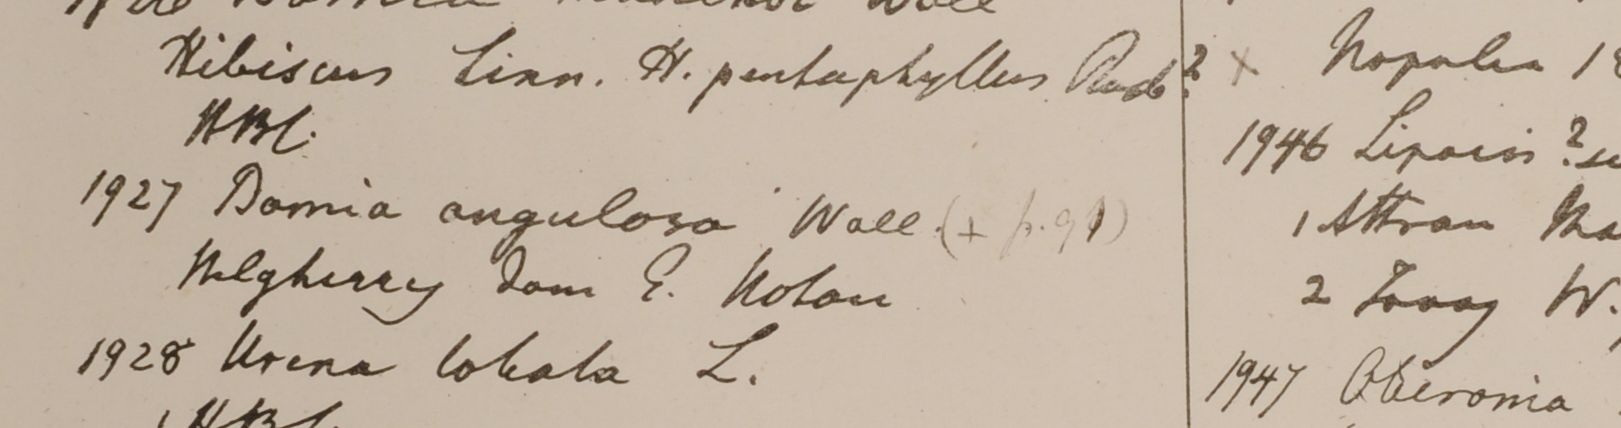 Hibiscus Linn. H. pentaphyllus Roxb?
HBC.
1927 Bamia angulosa Wall. (+ p. 91)
Nilgherry Dom E. Noton
1928 Urena lobata L.
HBC.
× Nopalea
1946 Liparis ?
1 Attran
2 Tavoy W.
1947 Oberonia